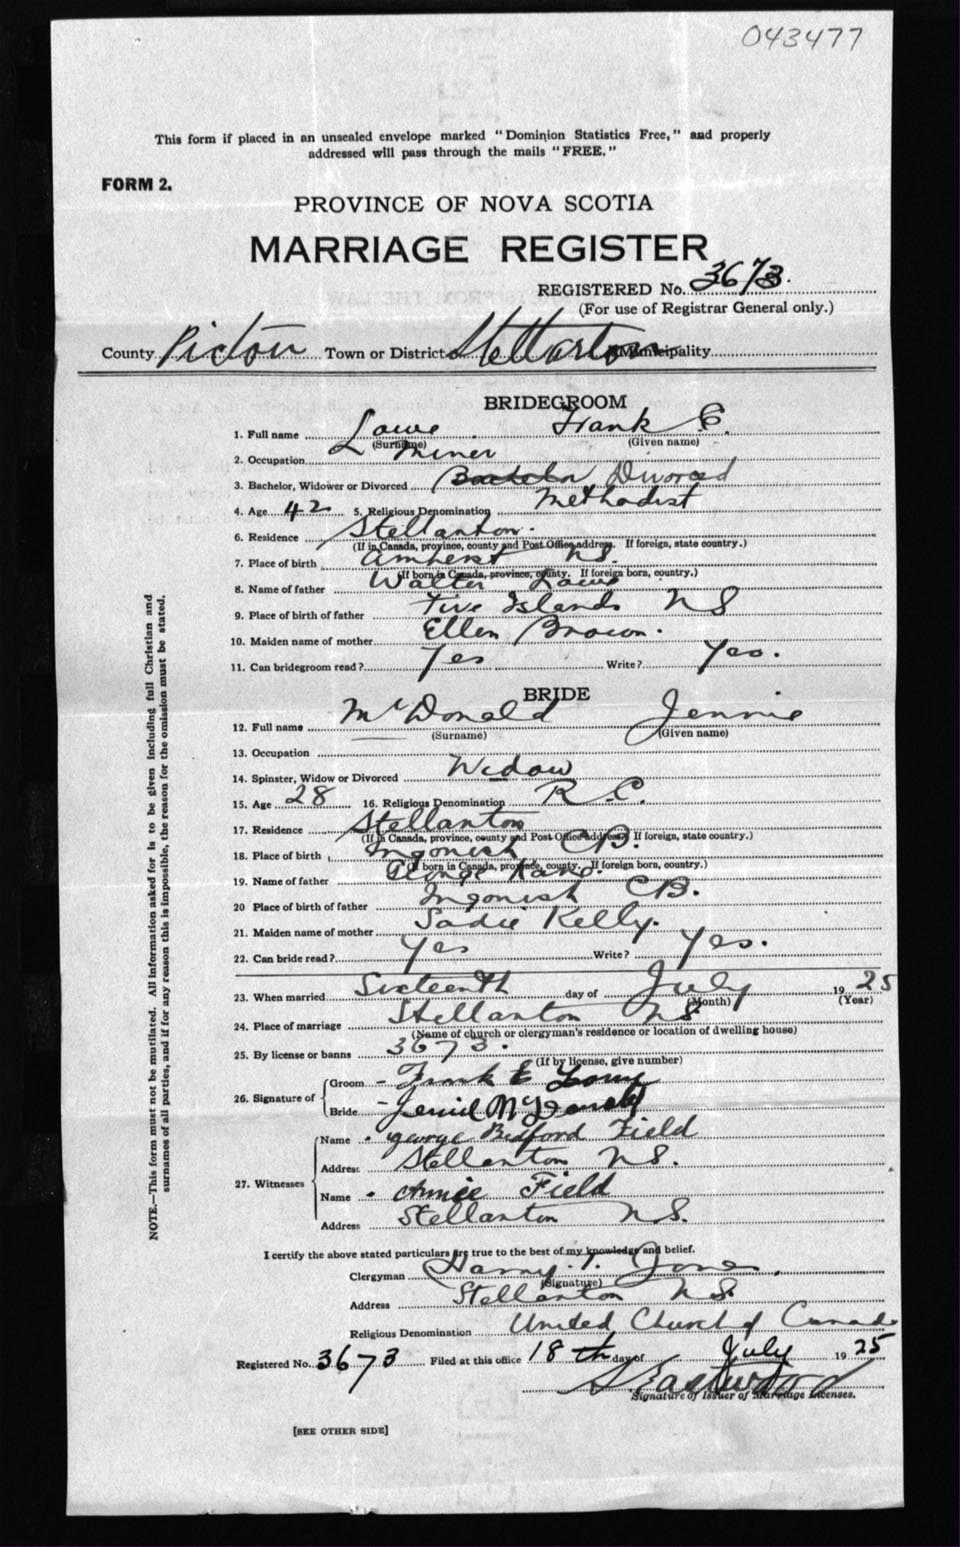 043477
This form if placed in an unsealed envelope marked "Dominion Statistics Free," and properly
addressed will pass through the mails "FREE."
FORM 2.
PROVINCE OF NOVA SCOTIA
MARRIAGE REGISTER
REGISTERED No. 3673.
(For use of Registrar General only.)
County Pictou Town or District Stellarton Municipality
BRIDEGROOM
1. Full name Lowe Frank E.
(Surname) (Given name)
2. Occupation Miner
3. Bachelor, Widower or Divorced Bachelor Divorced
4. Age 42 5. Religious Denomination Methodist
6. Residence Stellarton.
(If in Canada, province, county and Post Office address. If foreign, state country.)
7. Place of birth Amherst N.S.
(If born in Canada, province, county. If foreign born, country.)
8. Name of father Walter Lowe
9. Place of birth of father Five Islands NS
10. Maiden name of mother Ellen Brown.
11. Can bridegroom read? Yes Write? Yes.
BRIDE
12. Full name McDonald Jennie
(Surname) (Given name)
13. Occupation
14. Spinster, Widow or Divorced Widow
15. Age 28 16. Religious Denomination R.C.
17. Residence Stellarton
(If in Canada, province, county and Post Office address. If foreign, state country.)
18. Place of birth Ingonish CB.
(If born in Canada, province, county. If foreign born, country.)
19. Name of father George
20 Place of birth of father Ingonish CB.
21. Maiden name of mother Sadie Kelly.
22. Can bride read? Yes Write? Yes.
23. When married Sixteenth day of July 1925
(Month) (Year)
24. Place of marriage Stellarton NS
(Name of church or clergyman's residence or location of dwelling house)
25. By license or banns 3673.
(If by license, give number)
26. Signature of Groom - Frank E Lowe
Bride - Jennie McDonald
27. Witnesses Name George Bedford Field
Address Stellarton NS.
Name Annie Field
Address Stellarton NS.
I certify the above stated particulars are true to the best of my knowledge and belief.
Clergyman Harry. T. Jones.
(Signature)
Address Stellarton NS.
Religious Denomination United Church of Canada
Registered No. 3673 Filed at this office 18th day of July 1925
S. Eastwood
Signature of Issuer of Marriage Licenses.
[SEE OTHER SIDE]
NOTE.—This form must not be mutilated. All information asked for is to be given including full Christian and
surnames of all parties, and if for any reason this is impossible, the reason for the omission must be stated.